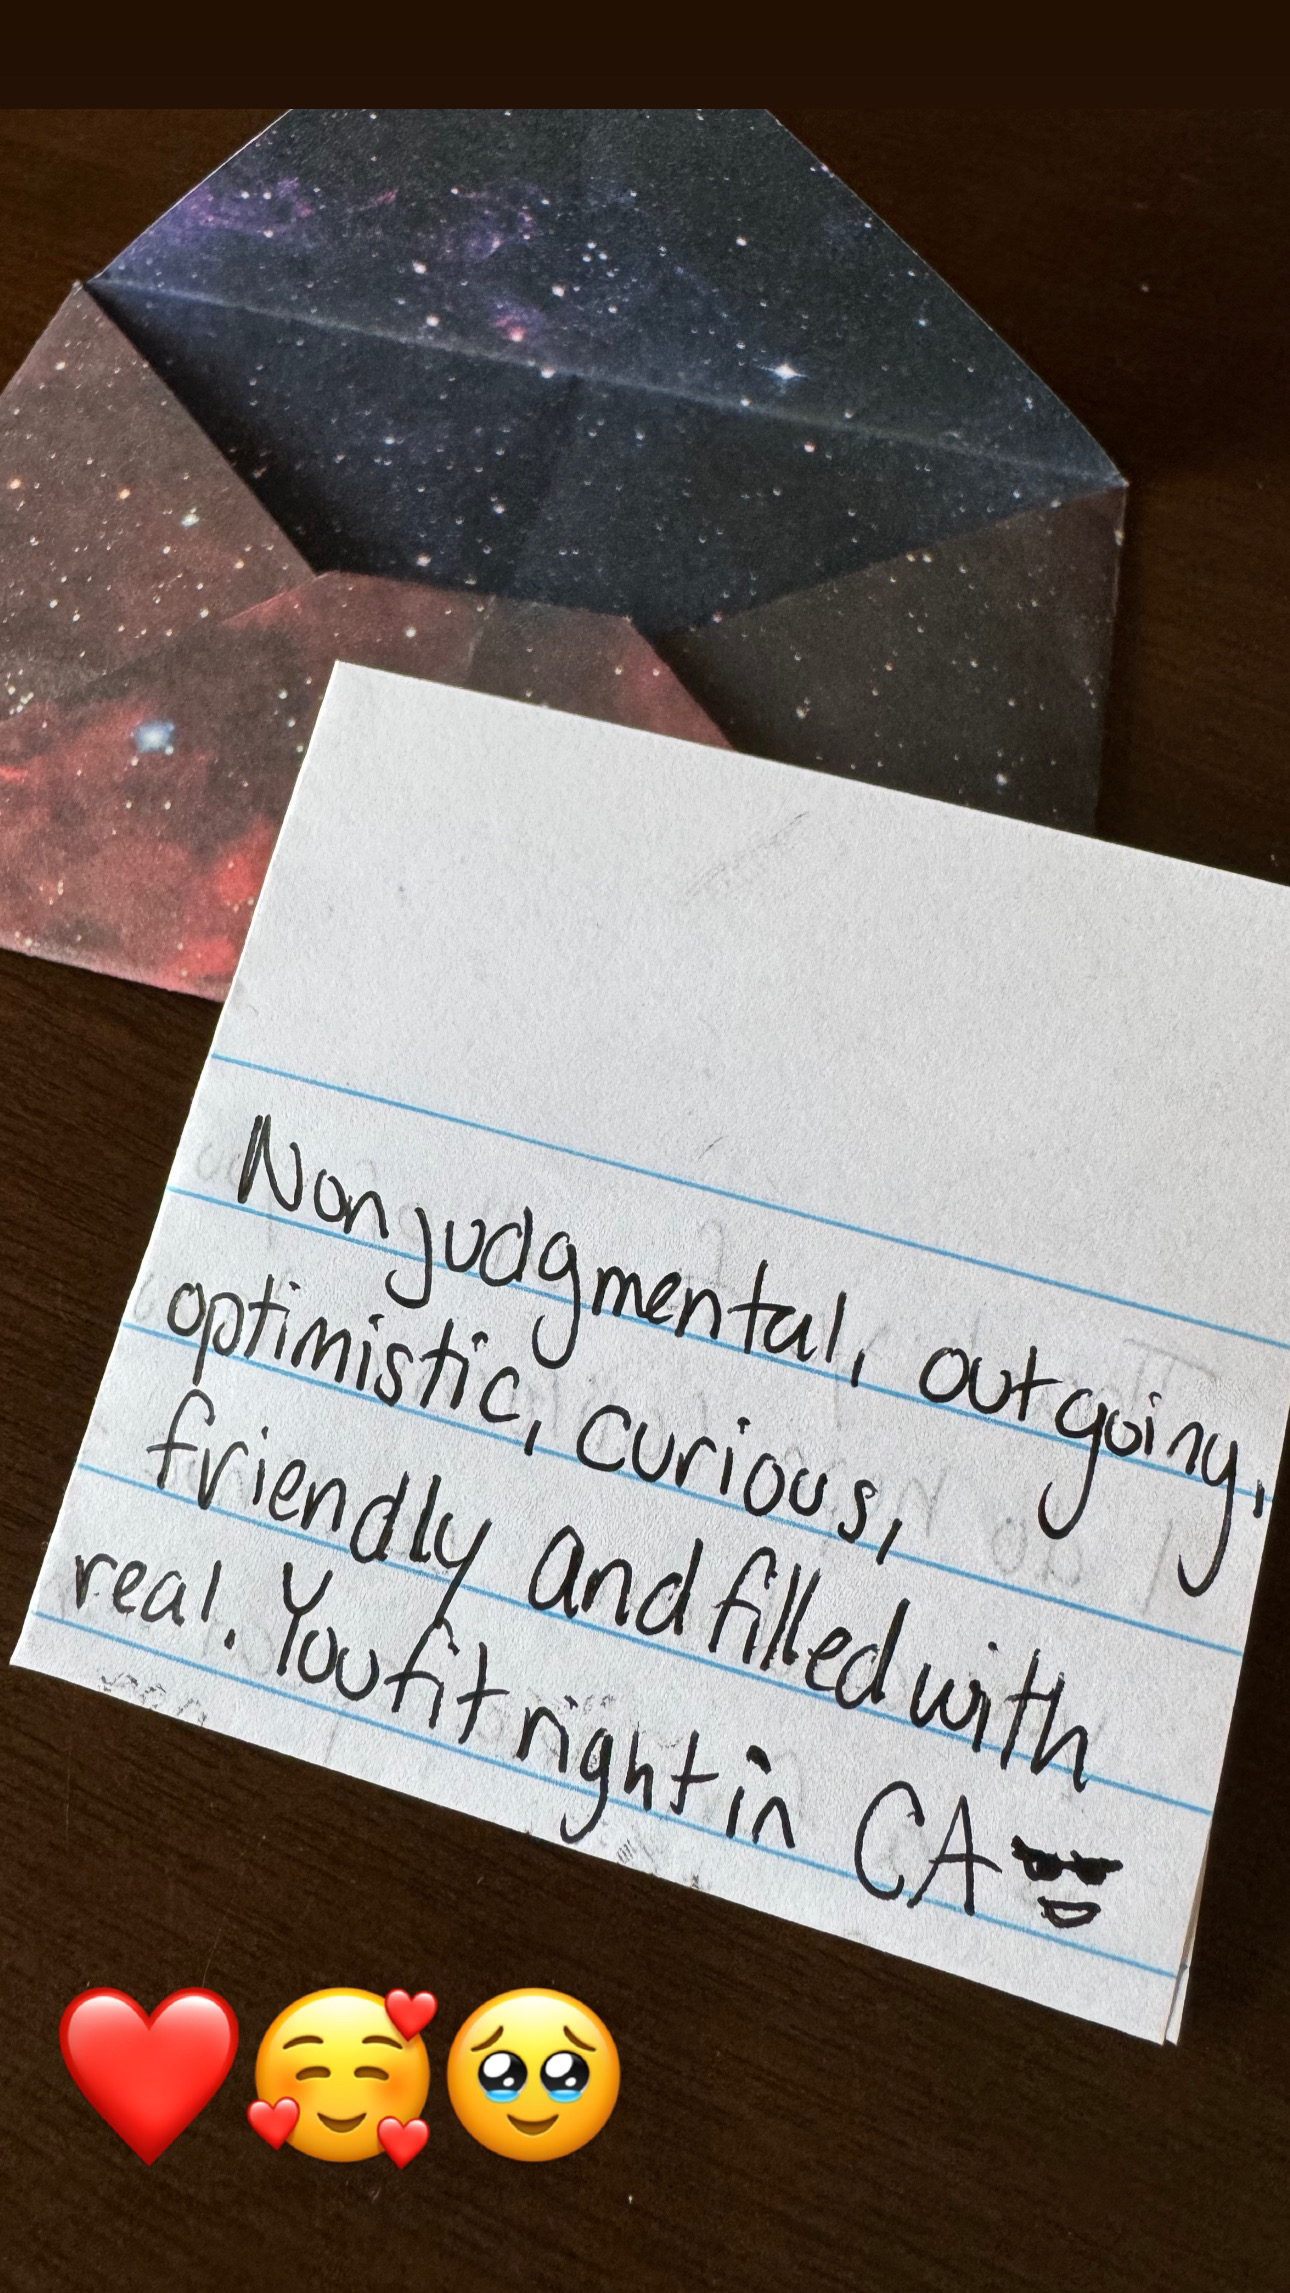 Nonjudgmental, outgoing,
optimistic, curious,
friendly and filled with
real. You fit right in CA